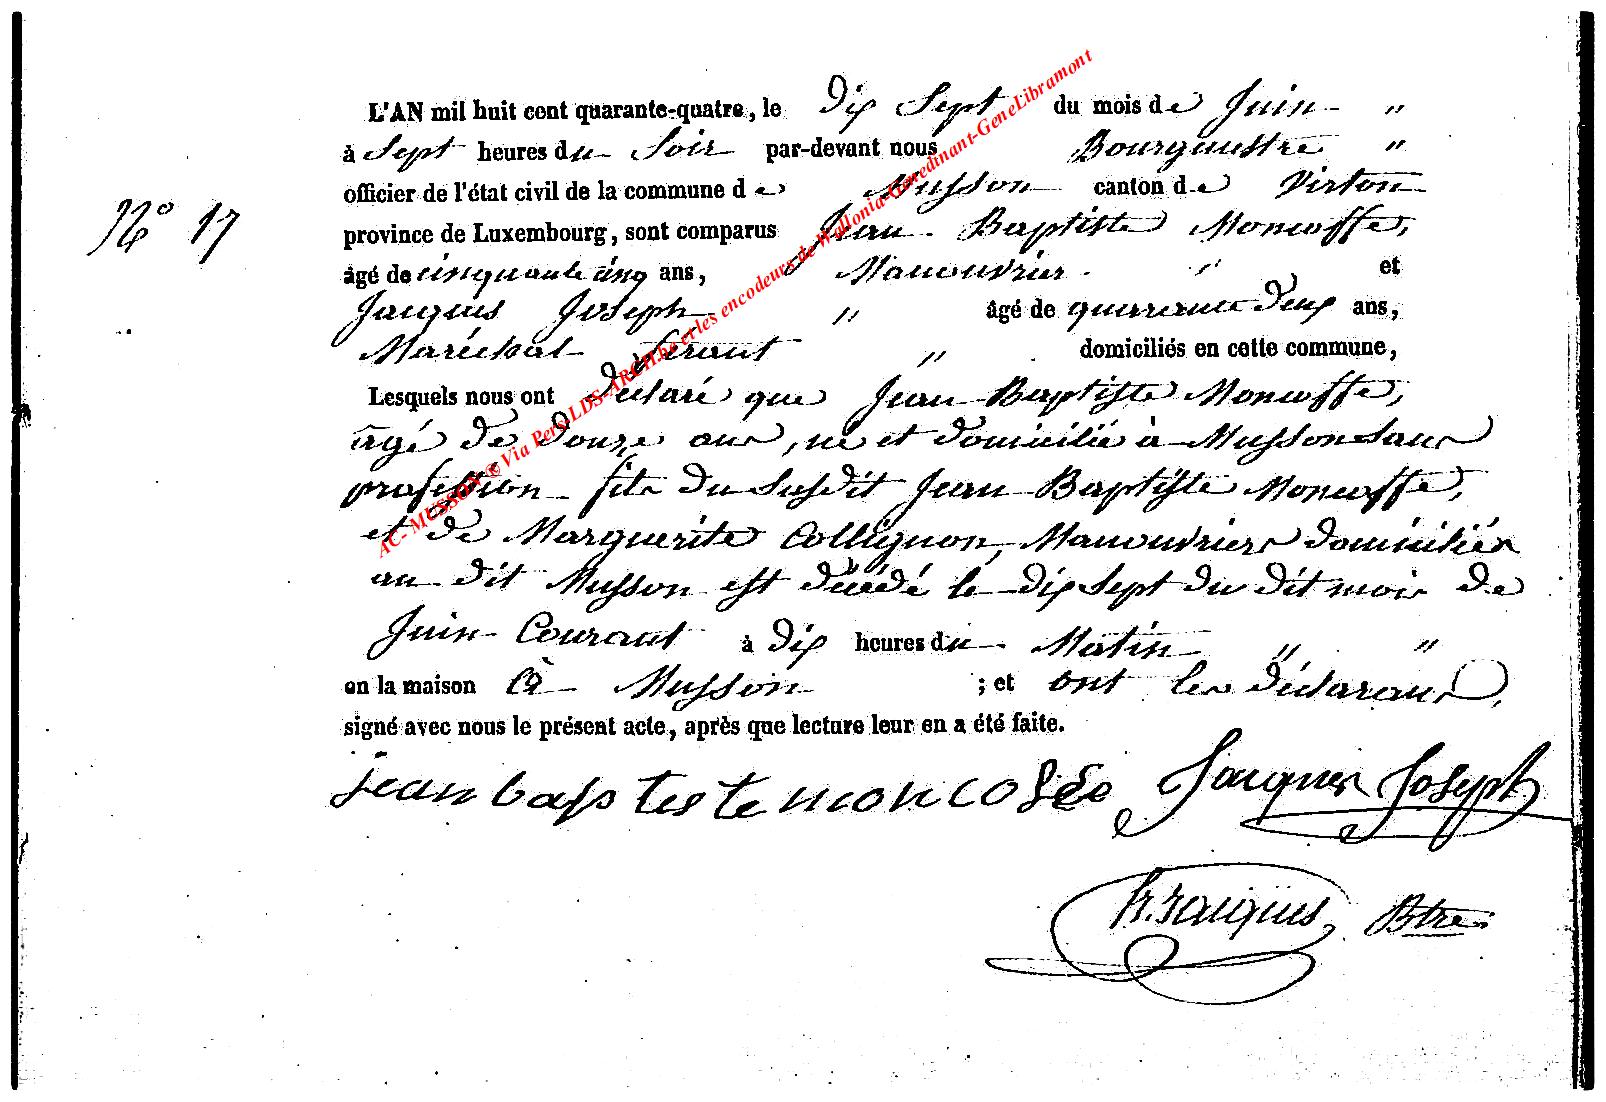 L'AN mil huit cent quarante-quatre, le dix Sept du mois de Juin "
à Sept heures du Soir par-devant nous Bourgmestre "
officier de l'état civil de la commune de Musson canton de Virton
N° 17
province de Luxembourg, sont comparus Jean Baptiste Moncoffe,
âgé de cinquante cinq ans, Manouvrier " et
Jacques Joseph " âgé de quarrante deux ans,
Maréchal ferant " domiciliés en cette commune,
Lesquels nous ont déclaré que Jean Baptiste Moncoffe,
âgé de douze ans, né et domicilié à Musson sans
profession fils du susdit Jean Baptiste Moncoffe,
et de Marguerite Collignon, Manouvriers domiciliés
au dit Musson est décédé le dix sept du dit mois de
Juin Courant à dix heures du Matin " "
en la maison à Musson ; et ont les déclarans,
signé avec nous le présent acte, après que lecture leur en a été faite.
jean baptiste moncofee Jacques Joseph
Jacques Btre
AC-MUSSON ® Via Pers LDS-ARCH.be et les encodeurs de Wallonia-Genedinant-GeneLibramont